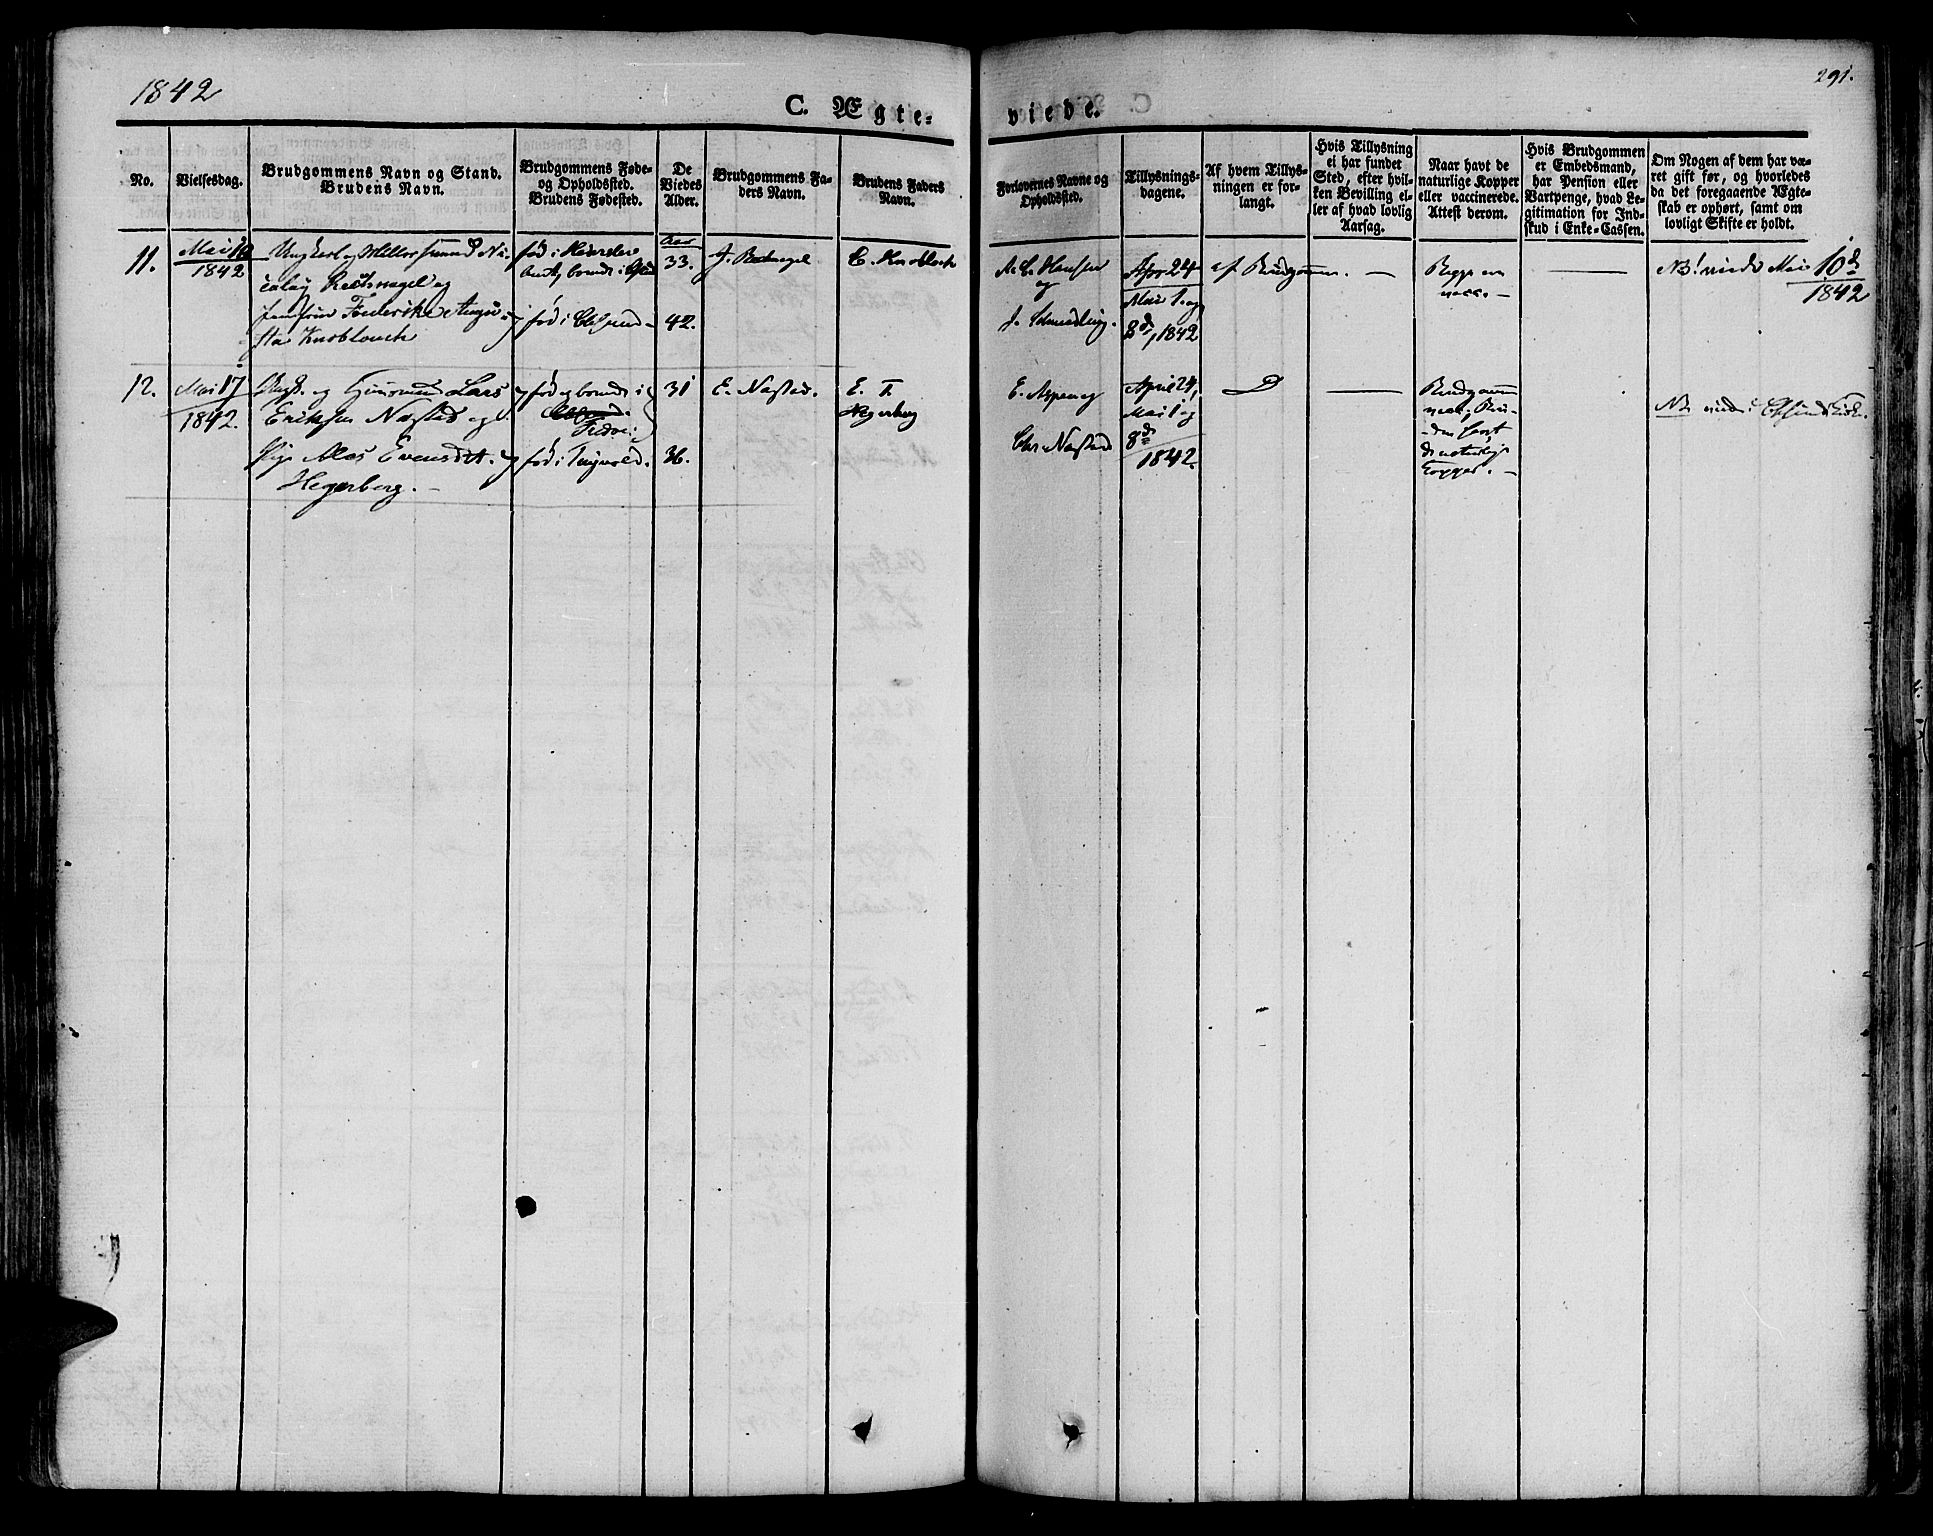 1842
C. Ægte-
viede.
291.
No.
Vielsesdag.
Brudgommens Navn og Stand.
Brudens Navn.
Brudgommens Føde-
og Opholdssted.
Brudens Fødested.
De
Viedes
Alder.
Brudgommens Fa-
ders Navn.
Brudens Faders
Navn.
Forlovernes Navne og
Opholdssted.
Tillysnings-
dagene.
Af hvem Tillys-
ningen er for-
langt.
Hvis Tillysning
ei har fundet
Sted, efter hvil-
ken Bevilling el-
ler af hvad lovlig
Aarsag.
Naar havt de
naturlige Kopper
eller vaccinerede.
Attest derom.
Hvis Brudgommen
er Embedsmand,
har Pension eller
Vartpenge, hvad Le-
gitimation for Ind-
skud i Enke-Cassen.
Om Nogen af dem har væ-
ret gift før, og hvorledes
da det foregaaende Ægte-
skab er ophørt, samt om
lovligt Skifte er holdt.
11.
Mai 10
1842
Ungkarl og
Jomfrue Frederikke Augu-
sta Knoblouch
fød i
fød i
Aar
33.
42.
J.
C. Knobloch
A. C. Hansen
og
J. Schmedling.
Apr 24
Mai 1. og
8de, 1842
af Brudgommen.
—
Begge ere
vacc. —
—
NB! viede Mai 10de
1842
12.
Mai 17
1842.
Lars
Eriksen Nastad og
Pige Evensdt.
Hegerberg. —
fød og boende i
Fredøe:
fød i Tingvold.
31
36.
E. Nastad.
E. T.
Hegerberg
E. Aspen og
Chr Nastad
April 24,
Mai 1 og
8de
1842.
—
Brudgommen
vacc; Bru-
den havt
de naturlige
Kopper. —
NB viede i